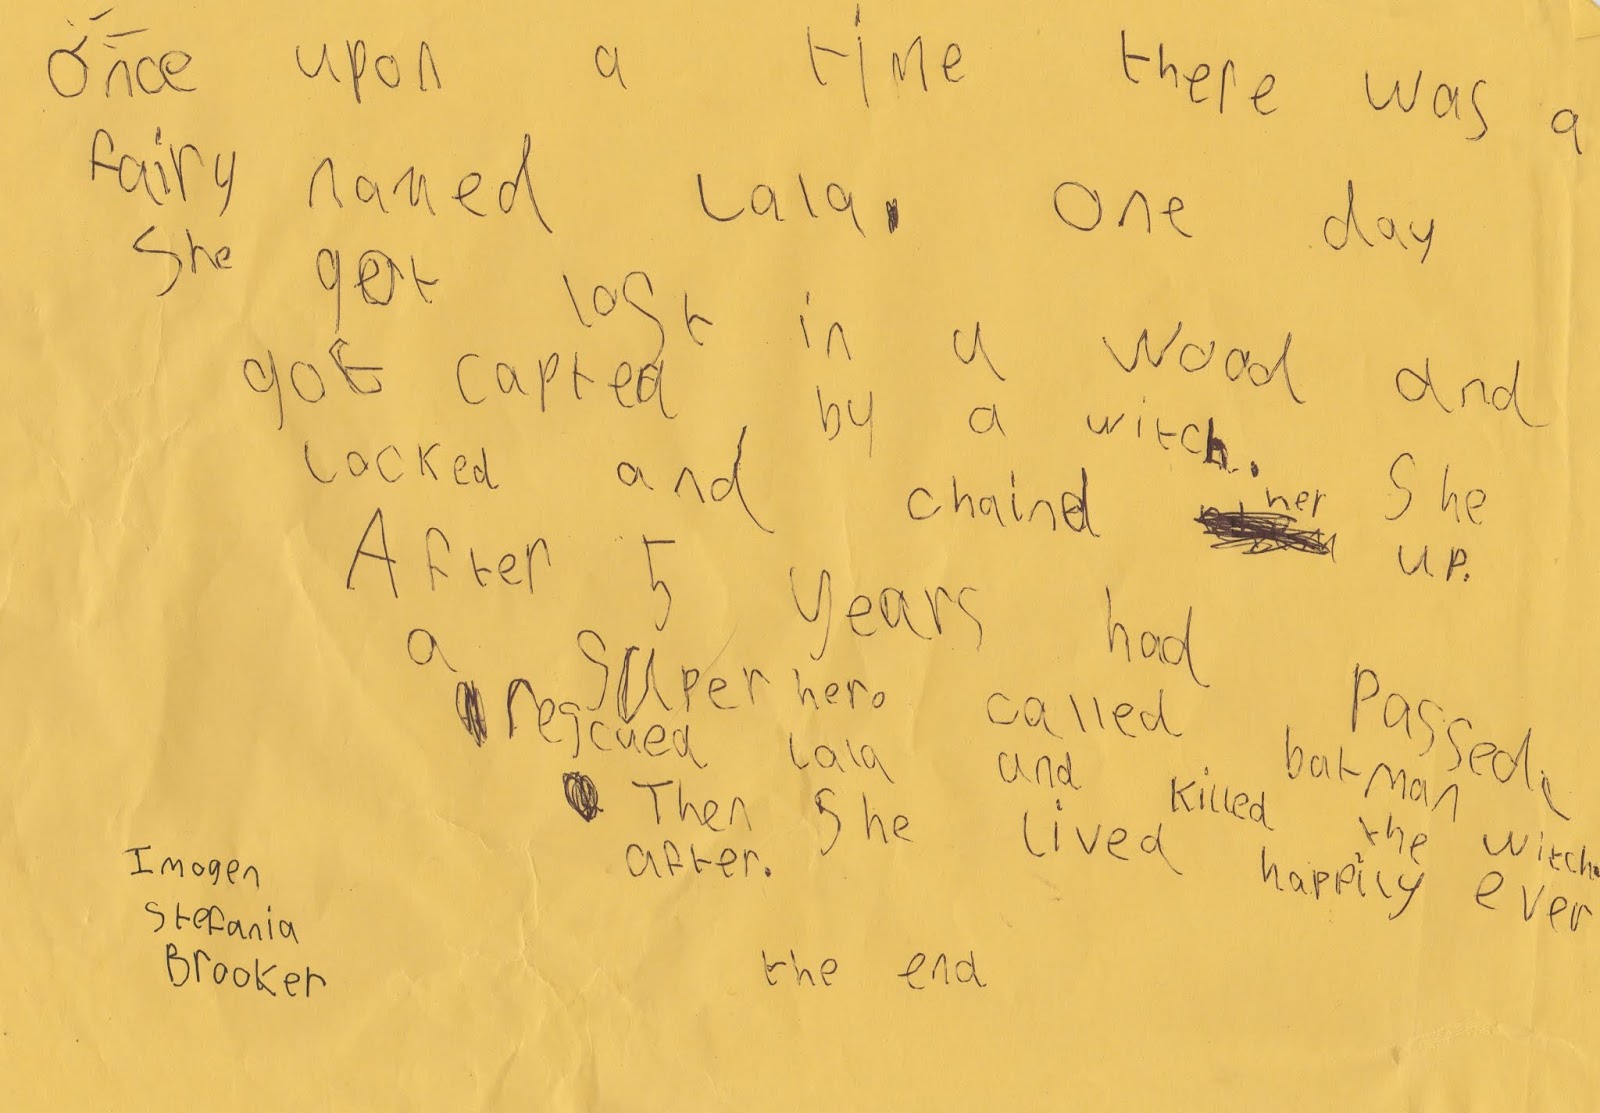 Once upon a time there was a
fairy named Lala. One day
She got lost in a wood and
got capted by a witch. She
Locked and chaind her up.
After 5 years had Passed,
a Super hero called batman
rescued Lala and killed the witch.
Then She Lived happily ever
after.
the end
Imogen
Stefania
Brooker